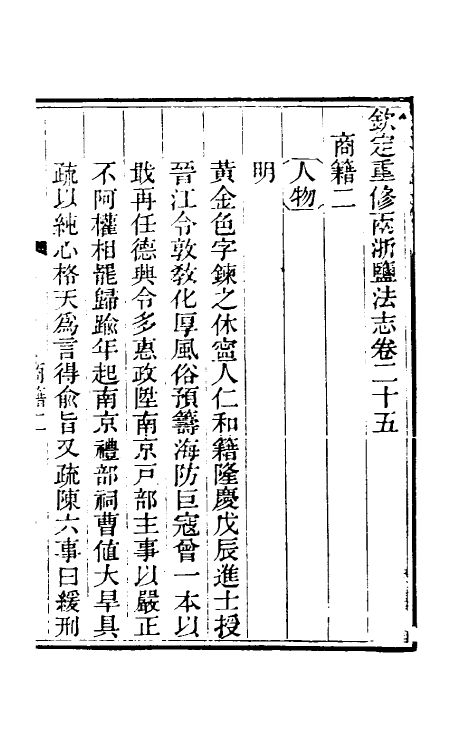 欽定重修兩浙鹽法志卷二十五
商籍二
人物
明
黃金色字鍊之休寧人仁和籍隆慶戊辰進士授
晉江令敦敎化厚風俗預籌海防巨寇曾一本以
戢再任德興令多惠政陞南京戸部主事以嚴正
不阿權相罷歸踰年起南京禮部祠曹値大旱具
疏以純心格天爲言得俞旨又疏陳六事曰緩刑
商籍二